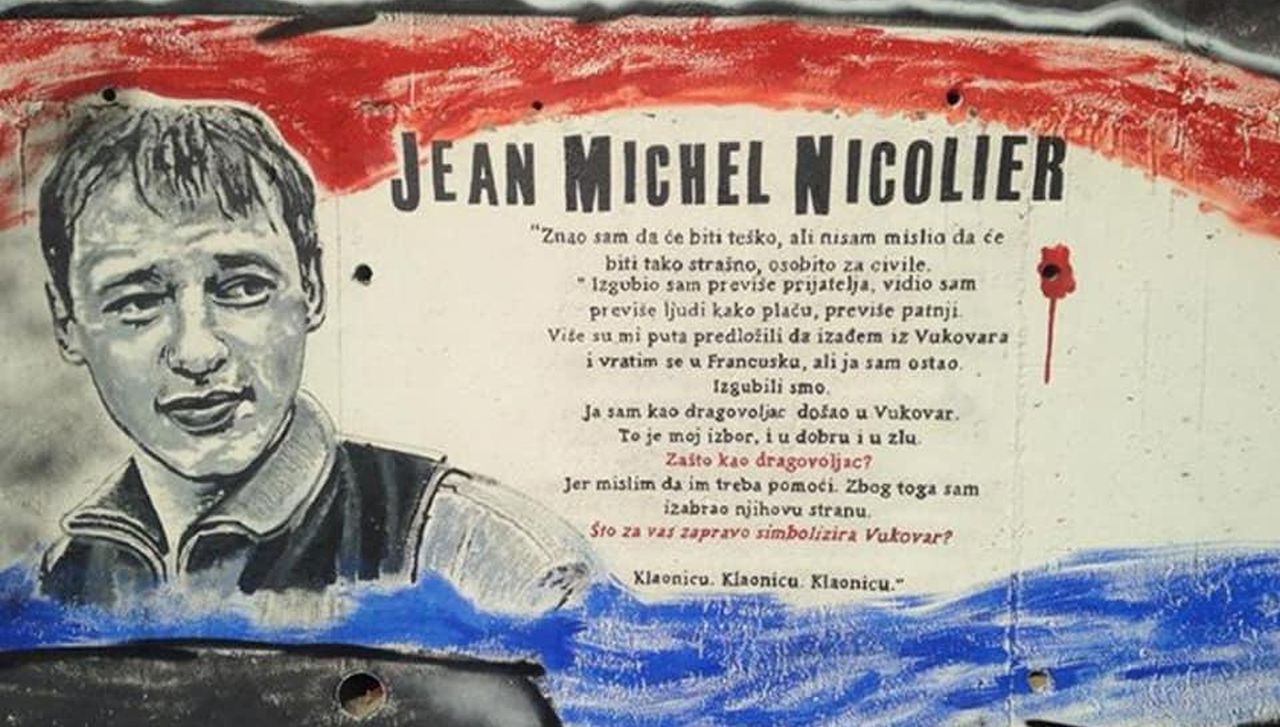 JEAN MICHEL NICOLIER
"Znao sam da će biti teško, ali nisam mislio da će
biti tako strašno, osobito za civile.
" Izgubio sam previše prijatelja, vidio sam
previše ljudi kako plaču, previše patnji.
Više su mi puta predložili da izađem iz Vukovara
i vratim se u Francusku, ali ja sam ostao.
Izgubili smo.
Ja sam kao dragovoljac došao u Vukovar.
To je moj izbor, i u dobru i u zlu.
Zašto kao dragovoljac?
Jer mislim da im treba pomoći. Zbog toga sam
izabrao njihovu stranu.
Što za vas zapravo simbolizira Vukovar?
Klaonicu. Klaonicu. Klaonicu."